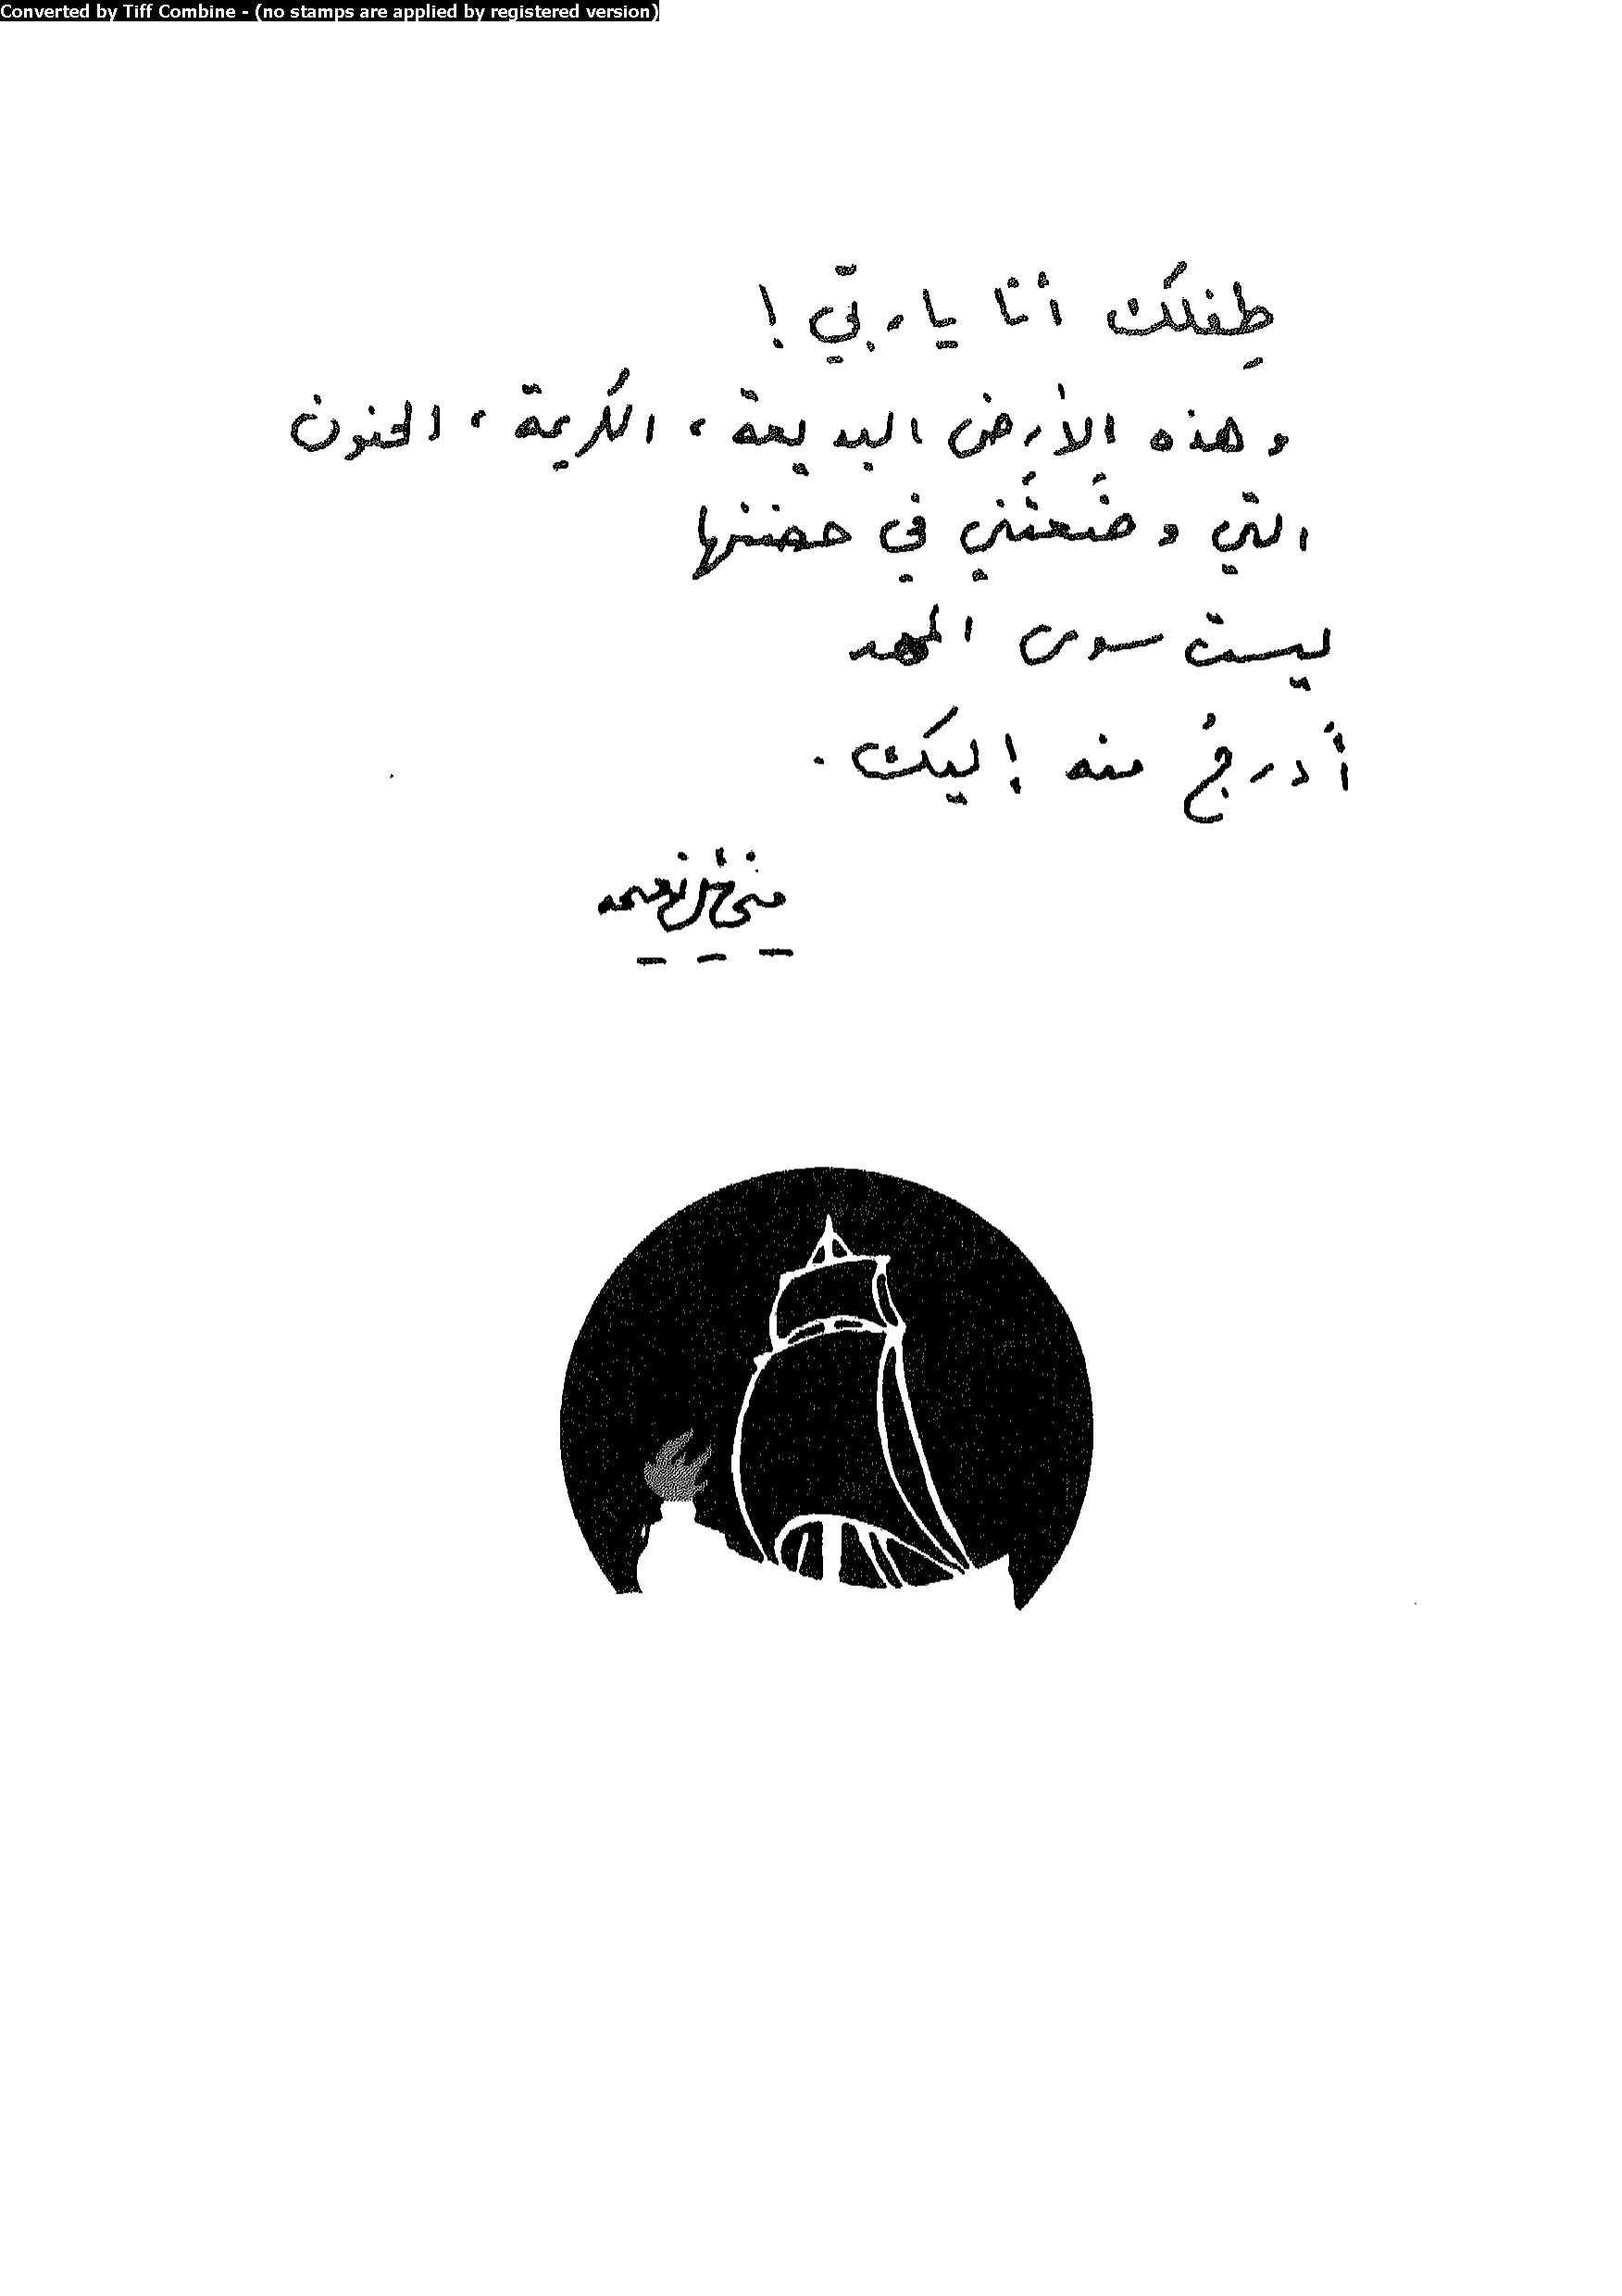 Converted by Tiff Combine - (no stamps are applied by registered version)
طِفلكَ أنا يا ربّي !
وهذه الأرض البديعة، الكريمة، الحنون
التي وضَعتَني في حضنها
ليست سوى المهد
أَدرجُ منه إليك .
ميخائيل نعيمه